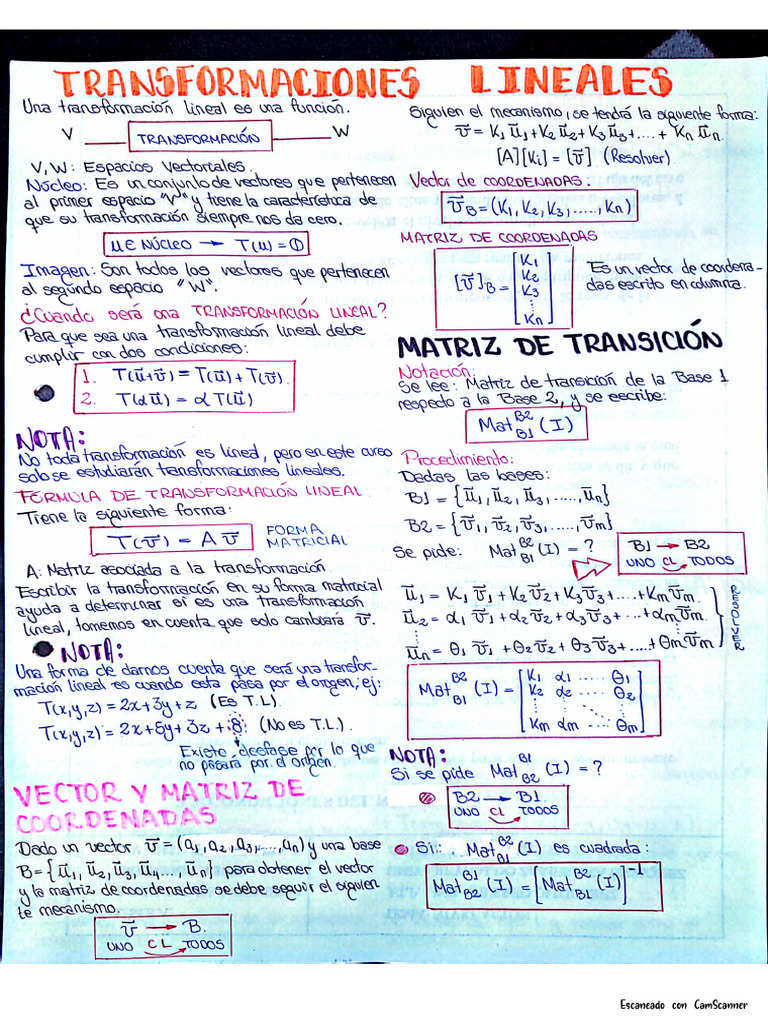 TRANSFORMACIONES LINEALES
Una transformación lineal es una función.
V TRANSFORMACIÓN W
V, W: Espacios Vectoriales.
Núcleo: Es un conjunto de vectores que pertenecen
al primer espacio "V" y tiene la característica de
que su transformación siempre nos da cero.
μ ∈ NÚCLEO → T(μ) = 0
Imagen: Son todos los vectores que pertenecen
al segundo espacio "W".
¿Cuándo será una TRANSFORMACIÓN LINEAL?
Para que sea una transformación lineal debe
cumplir con dos condiciones:
1. T(u⃗+v⃗) = T(u⃗) + T(v⃗).
2. T(αu⃗) = αT(u⃗)
NOTA:
No toda transformación es lineal, pero en este curso
solo se estudiarán transformaciones lineales.
FÓRMULA DE TRANSFORMACIÓN LINEAL
Tiene la siguiente forma:
T(v⃗) = A v⃗ FORMA
MATRICIAL
A: Matriz asociada a la transformación.
Escribir la transformación en su forma matricial
ayuda a determinar si es una transformación
lineal, tomemos en cuenta que solo cambiará v⃗.
NOTA:
Una forma de darnos cuenta que será una transfor-
mación lineal es cuando esta pasa por el origen, ej:
T(x,y,z) = 2x+3y+z (Es T.L.)
T(x,y,z) = 2x+5y+3z+8 (No es T.L.)
Existe desfase por lo que
no pasara por el origen.
VECTOR Y MATRIZ DE
COORDENADAS
Dado un vector v⃗ = (a₁, a₂, a₃, ..., aₙ) y una base
B = {u⃗₁, u⃗₂, u⃗₃, u⃗₄ ... u⃗ₙ} para obtener el vector
y la matriz de coordenadas se debe seguir el siguien
te mecanismo.
v⃗ → B.
UNO CL TODOS
Siguien el mecanismo, se tendrá la siguiente forma:
v⃗ = K₁u⃗₁+K₂u⃗₂+K₃u⃗₃+....+ Kₙu⃗ₙ.
[A][Ki] = [v⃗]. (Resolver)
Vector de COORDENADAS:
v⃗_B = (K₁, K₂, K₃, ....., Kₙ)
MATRIZ DE COORDENADAS
[v⃗]_B = [K₁ K₂ K₃ ⋮ Kₙ]
Es un vector de coordena-
das escrito en columna.
MATRIZ DE TRANSICIÓN
Notación:
Se lee: Matriz de transición de la Base 1
respecto a la Base 2, y se escribe:
Mat_B1^B2 (I)
Procedimiento:
Dadas las bases:
B1 = {u⃗₁, u⃗₂, u⃗₃, ....., u⃗ₙ}
B2 = {v⃗₁, v⃗₂, v⃗₃, ....., v⃗ₘ}
Se pide: Mat_B1^B2 (I) = ?
B1 → B2
UNO CL TODOS
u⃗₁ = K₁v⃗₁+K₂v⃗₂+K₃v⃗₃+...+Kₘv⃗ₘ.
u⃗₂ = α₁v⃗₁+α₂v⃗₂+α₃v⃗₃+...+αₘv⃗ₘ.
u⃗ₙ = θ₁v⃗₁+θ₂v⃗₂+θ₃v⃗₃+....+θₘv⃗ₘ
RESOLVER
Mat_B1^B2 (I) = [K₁ α₁ ..... θ₁
K₂ α₂ ..... θ₂
⋮ ⋮ ⋮
Kₘ αₘ ..... θₘ]
NOTA:
Si se pide Mat_B2^B1 (I) = ?
B2 → B1.
UNO CL TODOS
Si: Mat_B1^B2 (I) es cuadrada:
Mat_B2^B1 (I) = [Mat_B1^B2 (I)]⁻¹
Escaneado con CamScanner